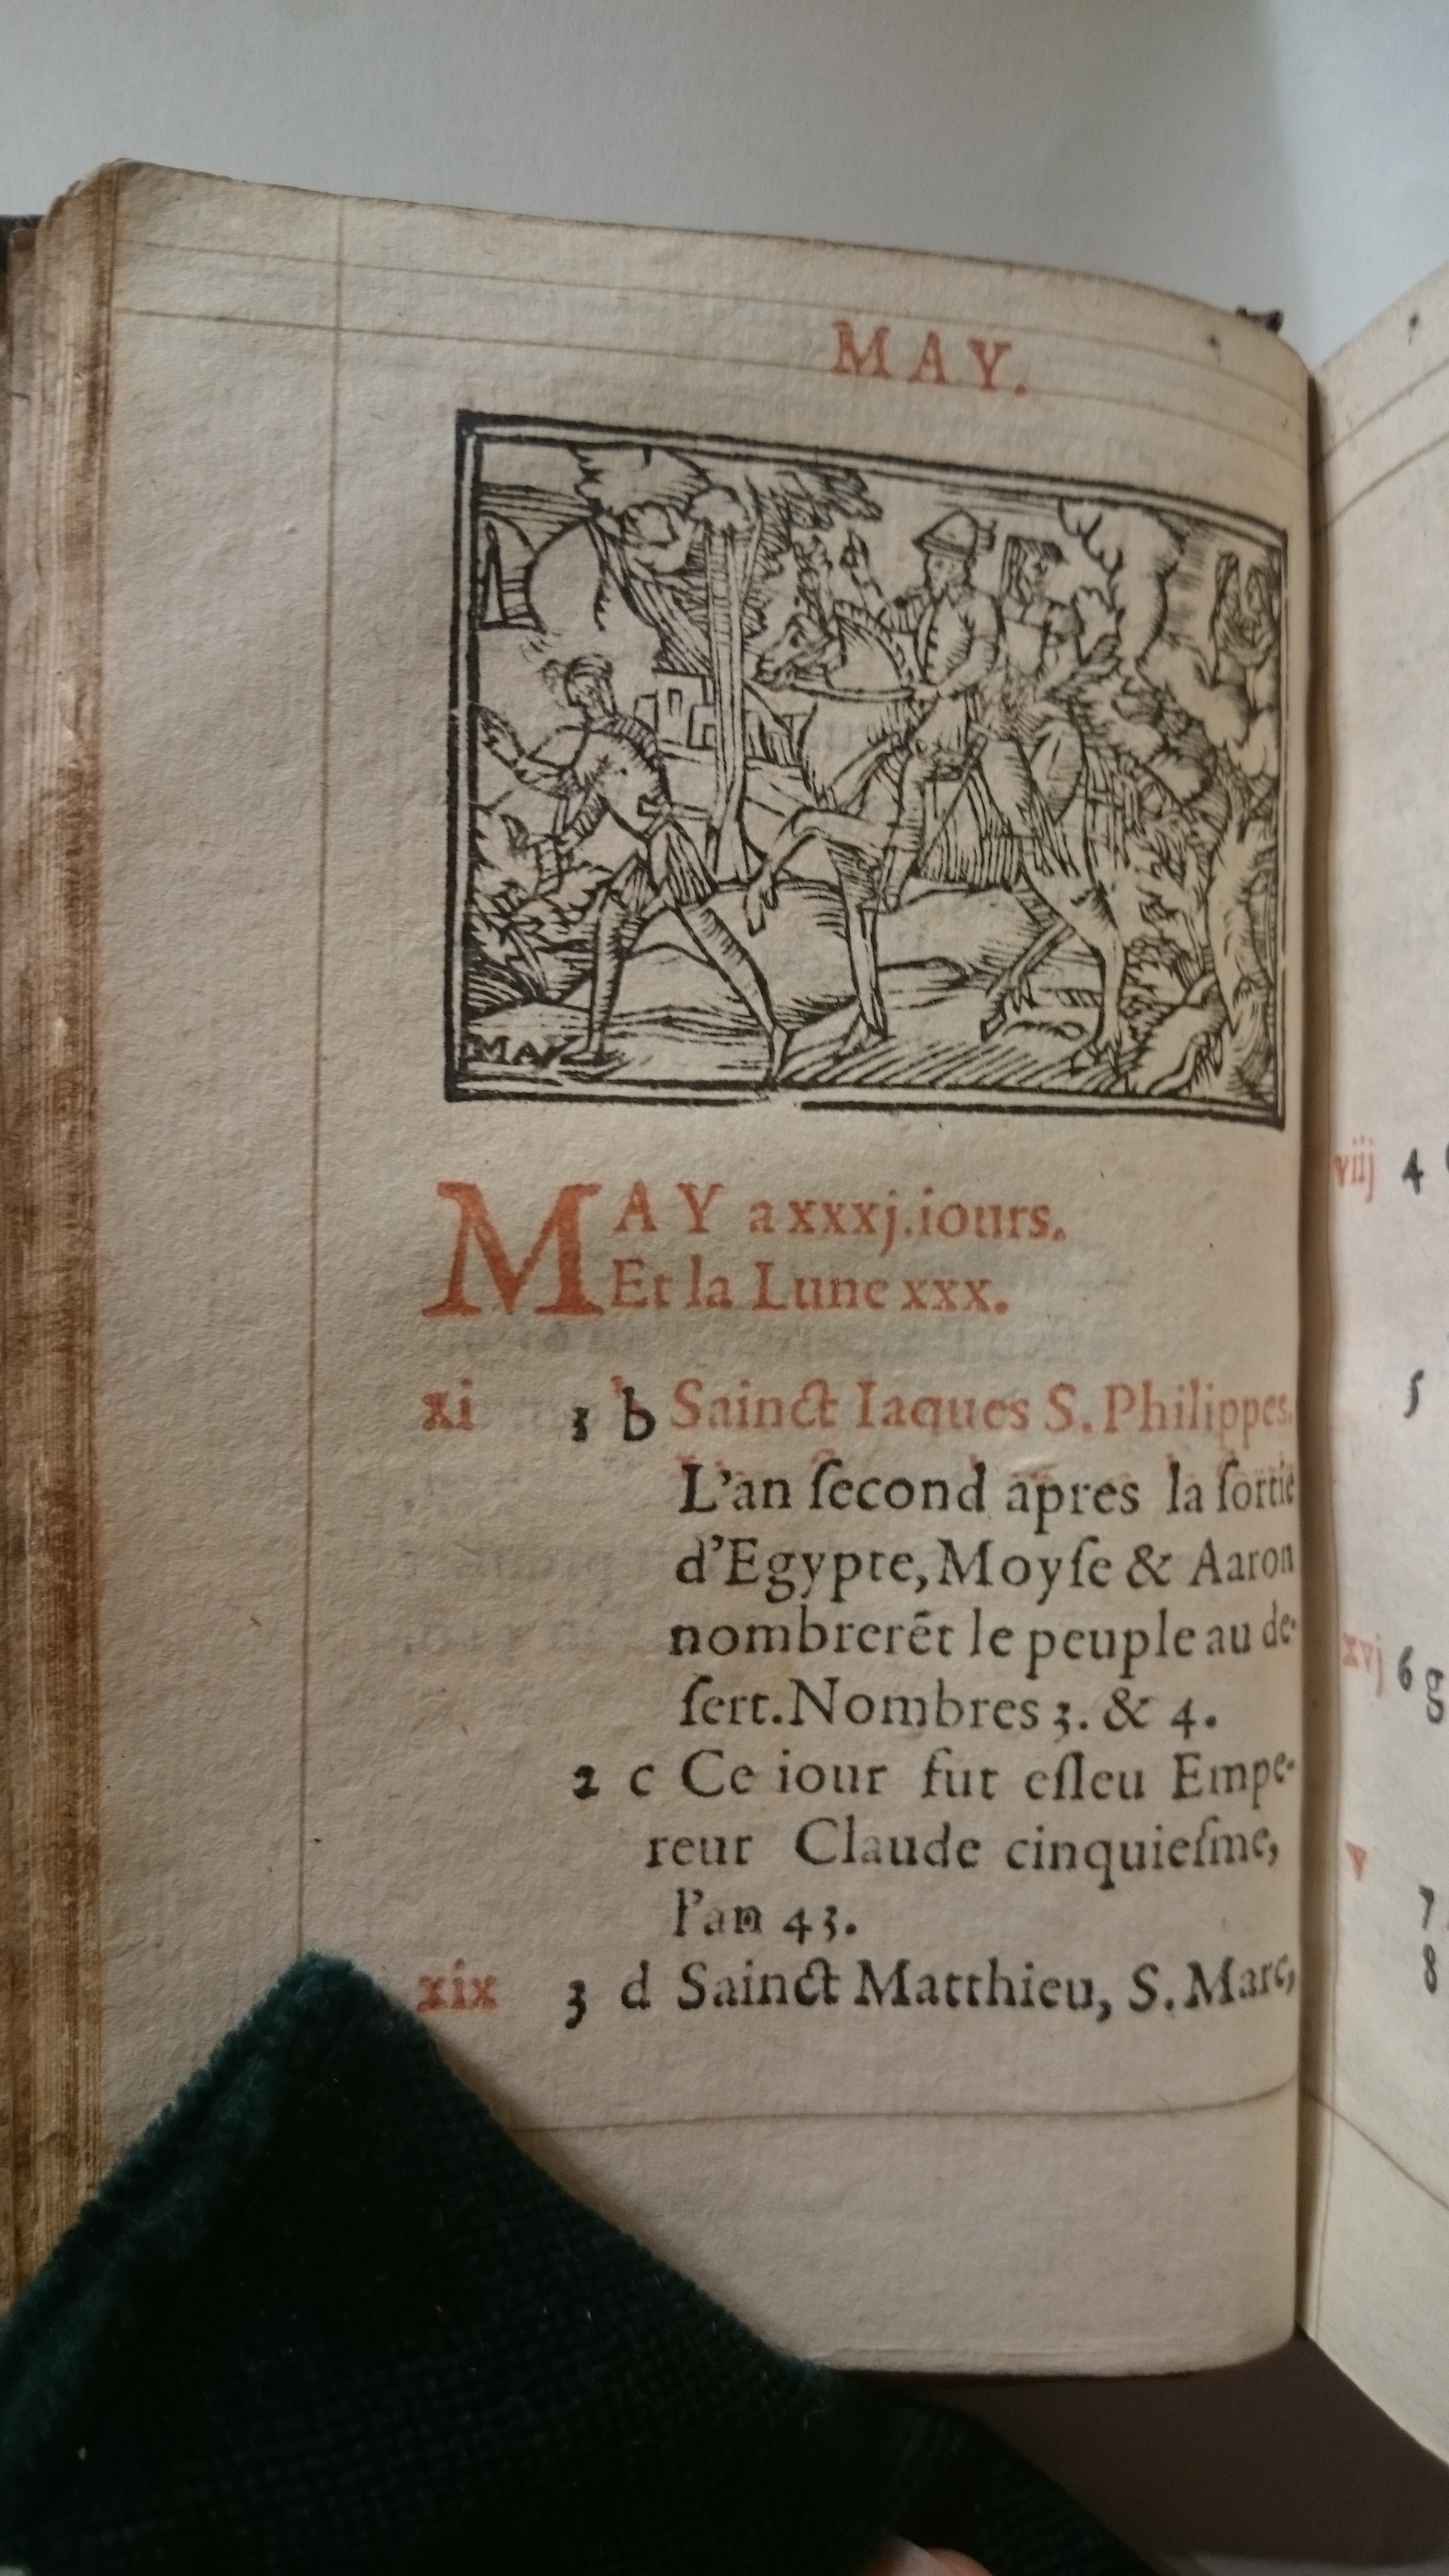 MAY.
MAY
MAY a xxxj. iours.
Et la Lune xxx.
xi 1 b Sainct Iaques S. Philippes.
L'an ſecond apres la ſortie
d'Egypte, Moyſe & Aaron
nombrerēt le peuple au de-
ſert. Nombres 3. & 4.
2 c Ce iour fut eſleu Empe-
reur Claude cinquieſme,
l'an 43.
xix 3 d Sainct Matthieu, S. Marc,
viij 4
5
xvj 6 g
v
7
8